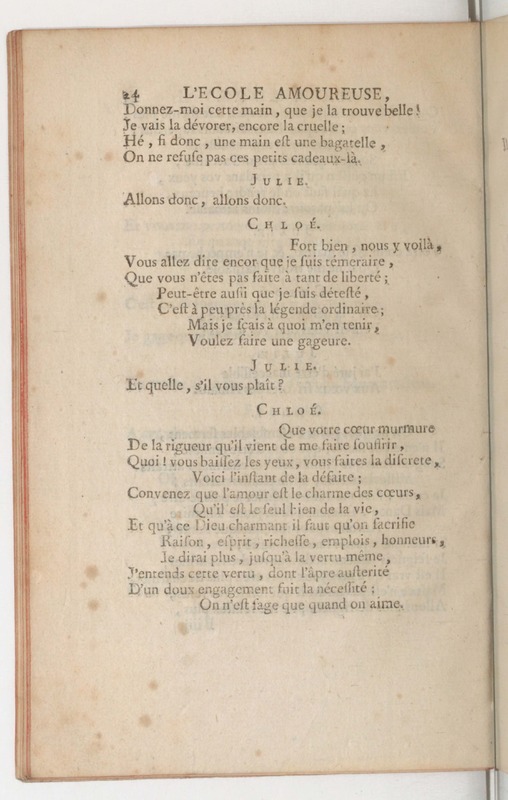 24 L'ECOLE AMOUREUSE,
Donnez-moi cette main, que je la trouve belle!
Je vais la dévorer, encore la cruelle;
Hé, fi donc, une main eſt une bagatelle,
On ne refuſe pas ces petits cadeaux-là.
JULIE.
Allons donc, allons donc.
CHLOÉ.
Fort bien, nous y voilà,
Vous allez dire encor que je ſuis témeraire,
Que vous n'êtes pas faite à tant de liberté;
Peut-être auſſi que je ſuis déteſté,
C'eſt à peu près la légende ordinaire;
Mais je ſçais à quoi m'en tenir,
Voulez faire une gageure.
JULIE.
Et quelle, s'il vous plaît?
CHLOÉ.
Que votre cœur murmure
De la rigueur qu'il vient de me faire ſouffrir,
Quoi! vous baiſſez les yeux, vous faites la diſcrete,
Voici l'inſtant de la défaite;
Convenez que l'amour eſt le charme des cœurs,
Qu'il eſt le ſeul bien de la vie,
Et qu'à ce Dieu charmant il faut qu'on ſacrifie
Raiſon, eſprit, richeſſe, emplois, honneurs,
Je dirai plus, juſqu'à la vertu même,
J'entends cette vertu, dont l'âpre auſterité
D'un doux engagement fuit la néceſſité;
On n'eſt ſage que quand on aime.